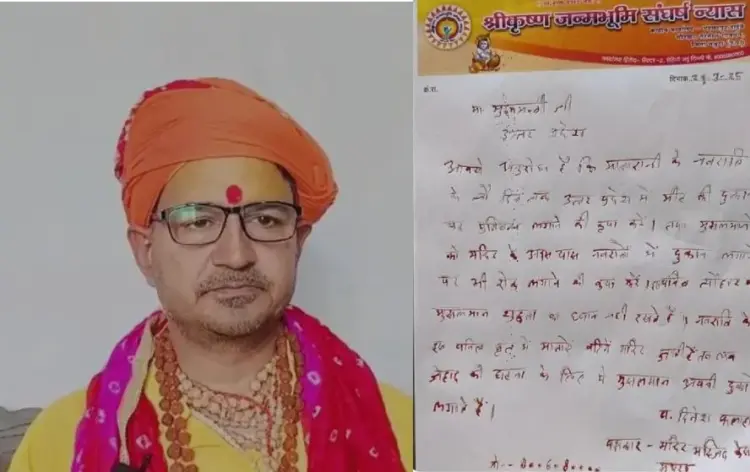 श्रीकृष्ण जन्मभूमि संघर्ष न्यास
दिनांक
क्र.सं.
मा. मुख्यमन्त्री जी
उत्तर प्रदेश
आपसे अनुरोध है कि मातारानी के नवरात्रि
के नौ दिन तक उत्तर प्रदेश में मीट की दुकान
पर प्रतिबन्ध लगाने की कृपा करें। तथा मुसलमान
को मंदिर के आस पास नवरात्रों में दुकान लगाने
पर भी रोक लगाने की कृपा करें।
मुसलमान शुद्धता का ध्यान नहीं रखते हैं। नवरात्रि के
इस पवित्र में मातायें बहिनें मंदिर जाती हैं लव
जेहाद की घटना के लिए ये मुसलमान अपनी दुकान
लगाते हैं।
पं. दिनेश फलाहारी
पक्षकार - मंदिर मस्जिद केस
मथुरा